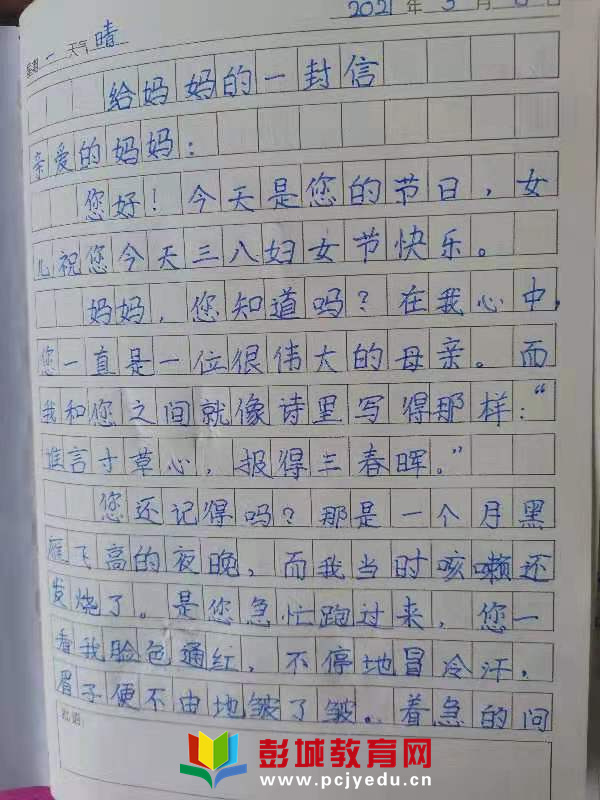 2021 年 3 月 日
星期 一 天气 晴
给妈妈的一封信
亲爱的妈妈：
您好！今天是您的节日，女
儿祝您今天三八妇女节快乐。
妈妈，您知道吗？在我心中，
您一直是一位很伟大的母亲。而
我和您之间就像诗里写得那样：“
谁言寸草心，报得三春晖。”
您还记得吗？那是一个月黑
雁飞高的夜晚，而我当时咳嗽还
发烧了。是您急忙跑过来，您一
看我脸色通红，不停地冒冷汗，
眉子便不由地皱了皱。着急的问
批语：
彭城教育网
www.pcjyedu.cn